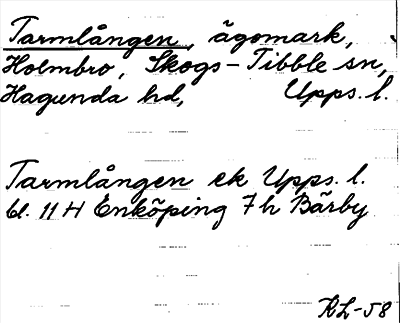 Tarmlången, ägomark,
Holmbro, Skogs-Tibble sn,
Hagunda hd, Upps. l.
Tarmlången ek Upps. l.
bl. 11 H Enköping 7h Bärby
RL-58